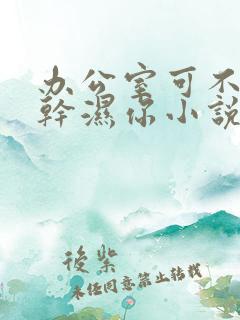 办公室可不
幹濕你小說
後柴
未经同意禁止转载